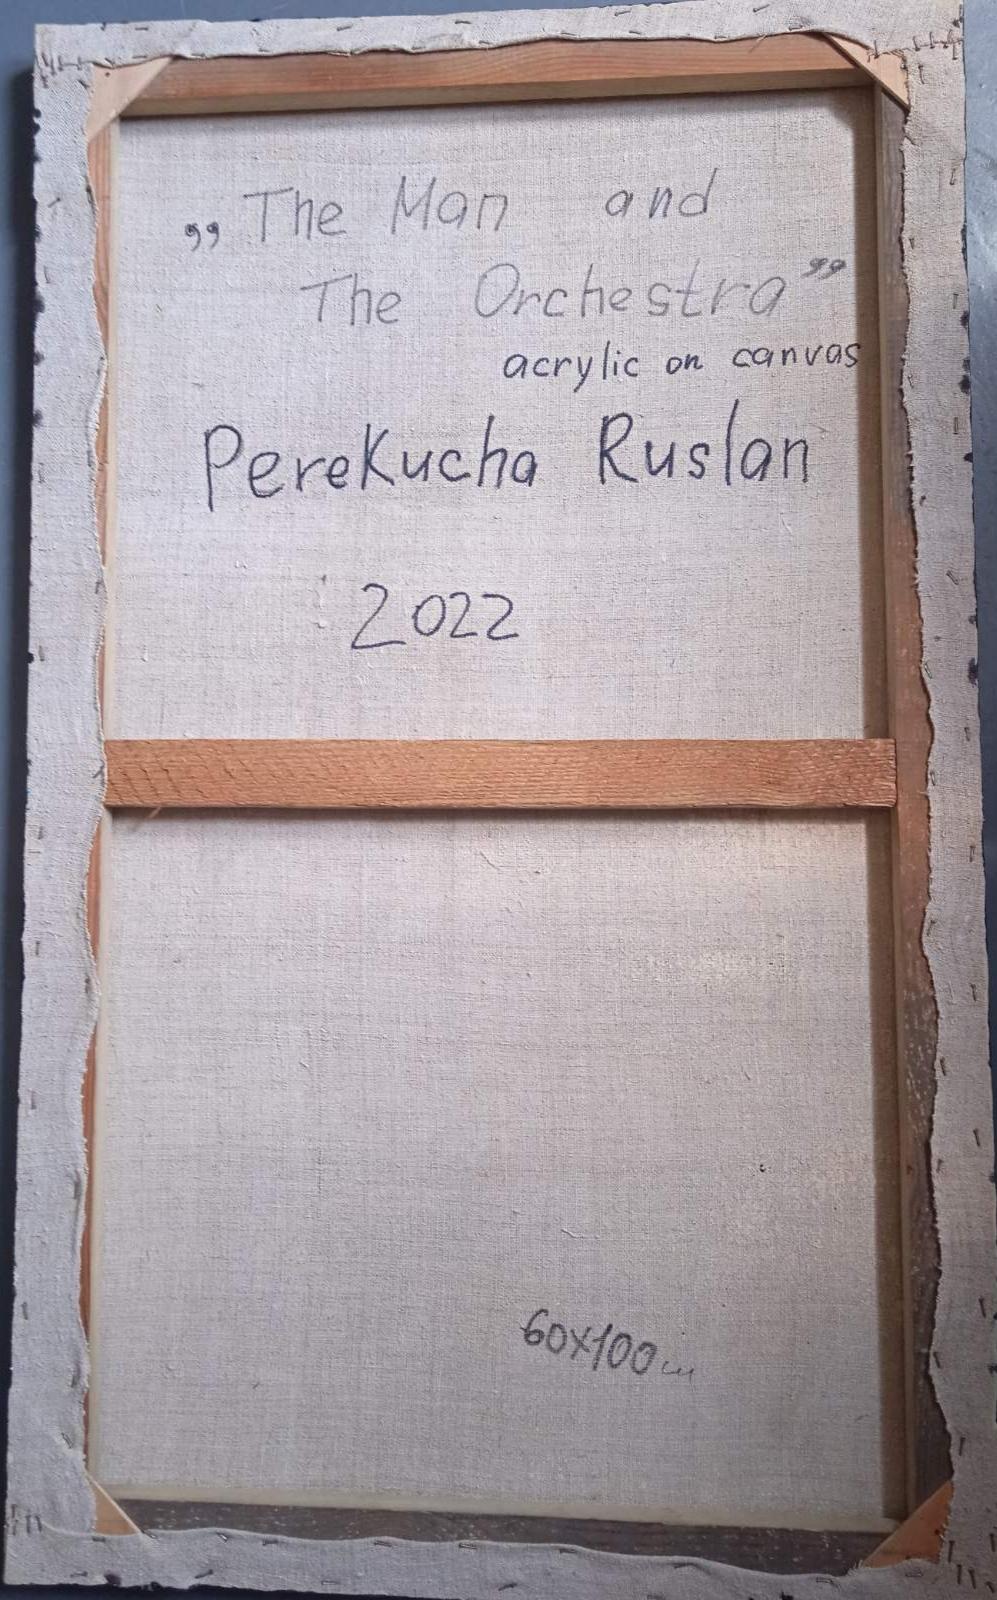 „The Man and
The Orchestra”
acrylic on canvas
Perekucha Ruslan
2022
60x100см